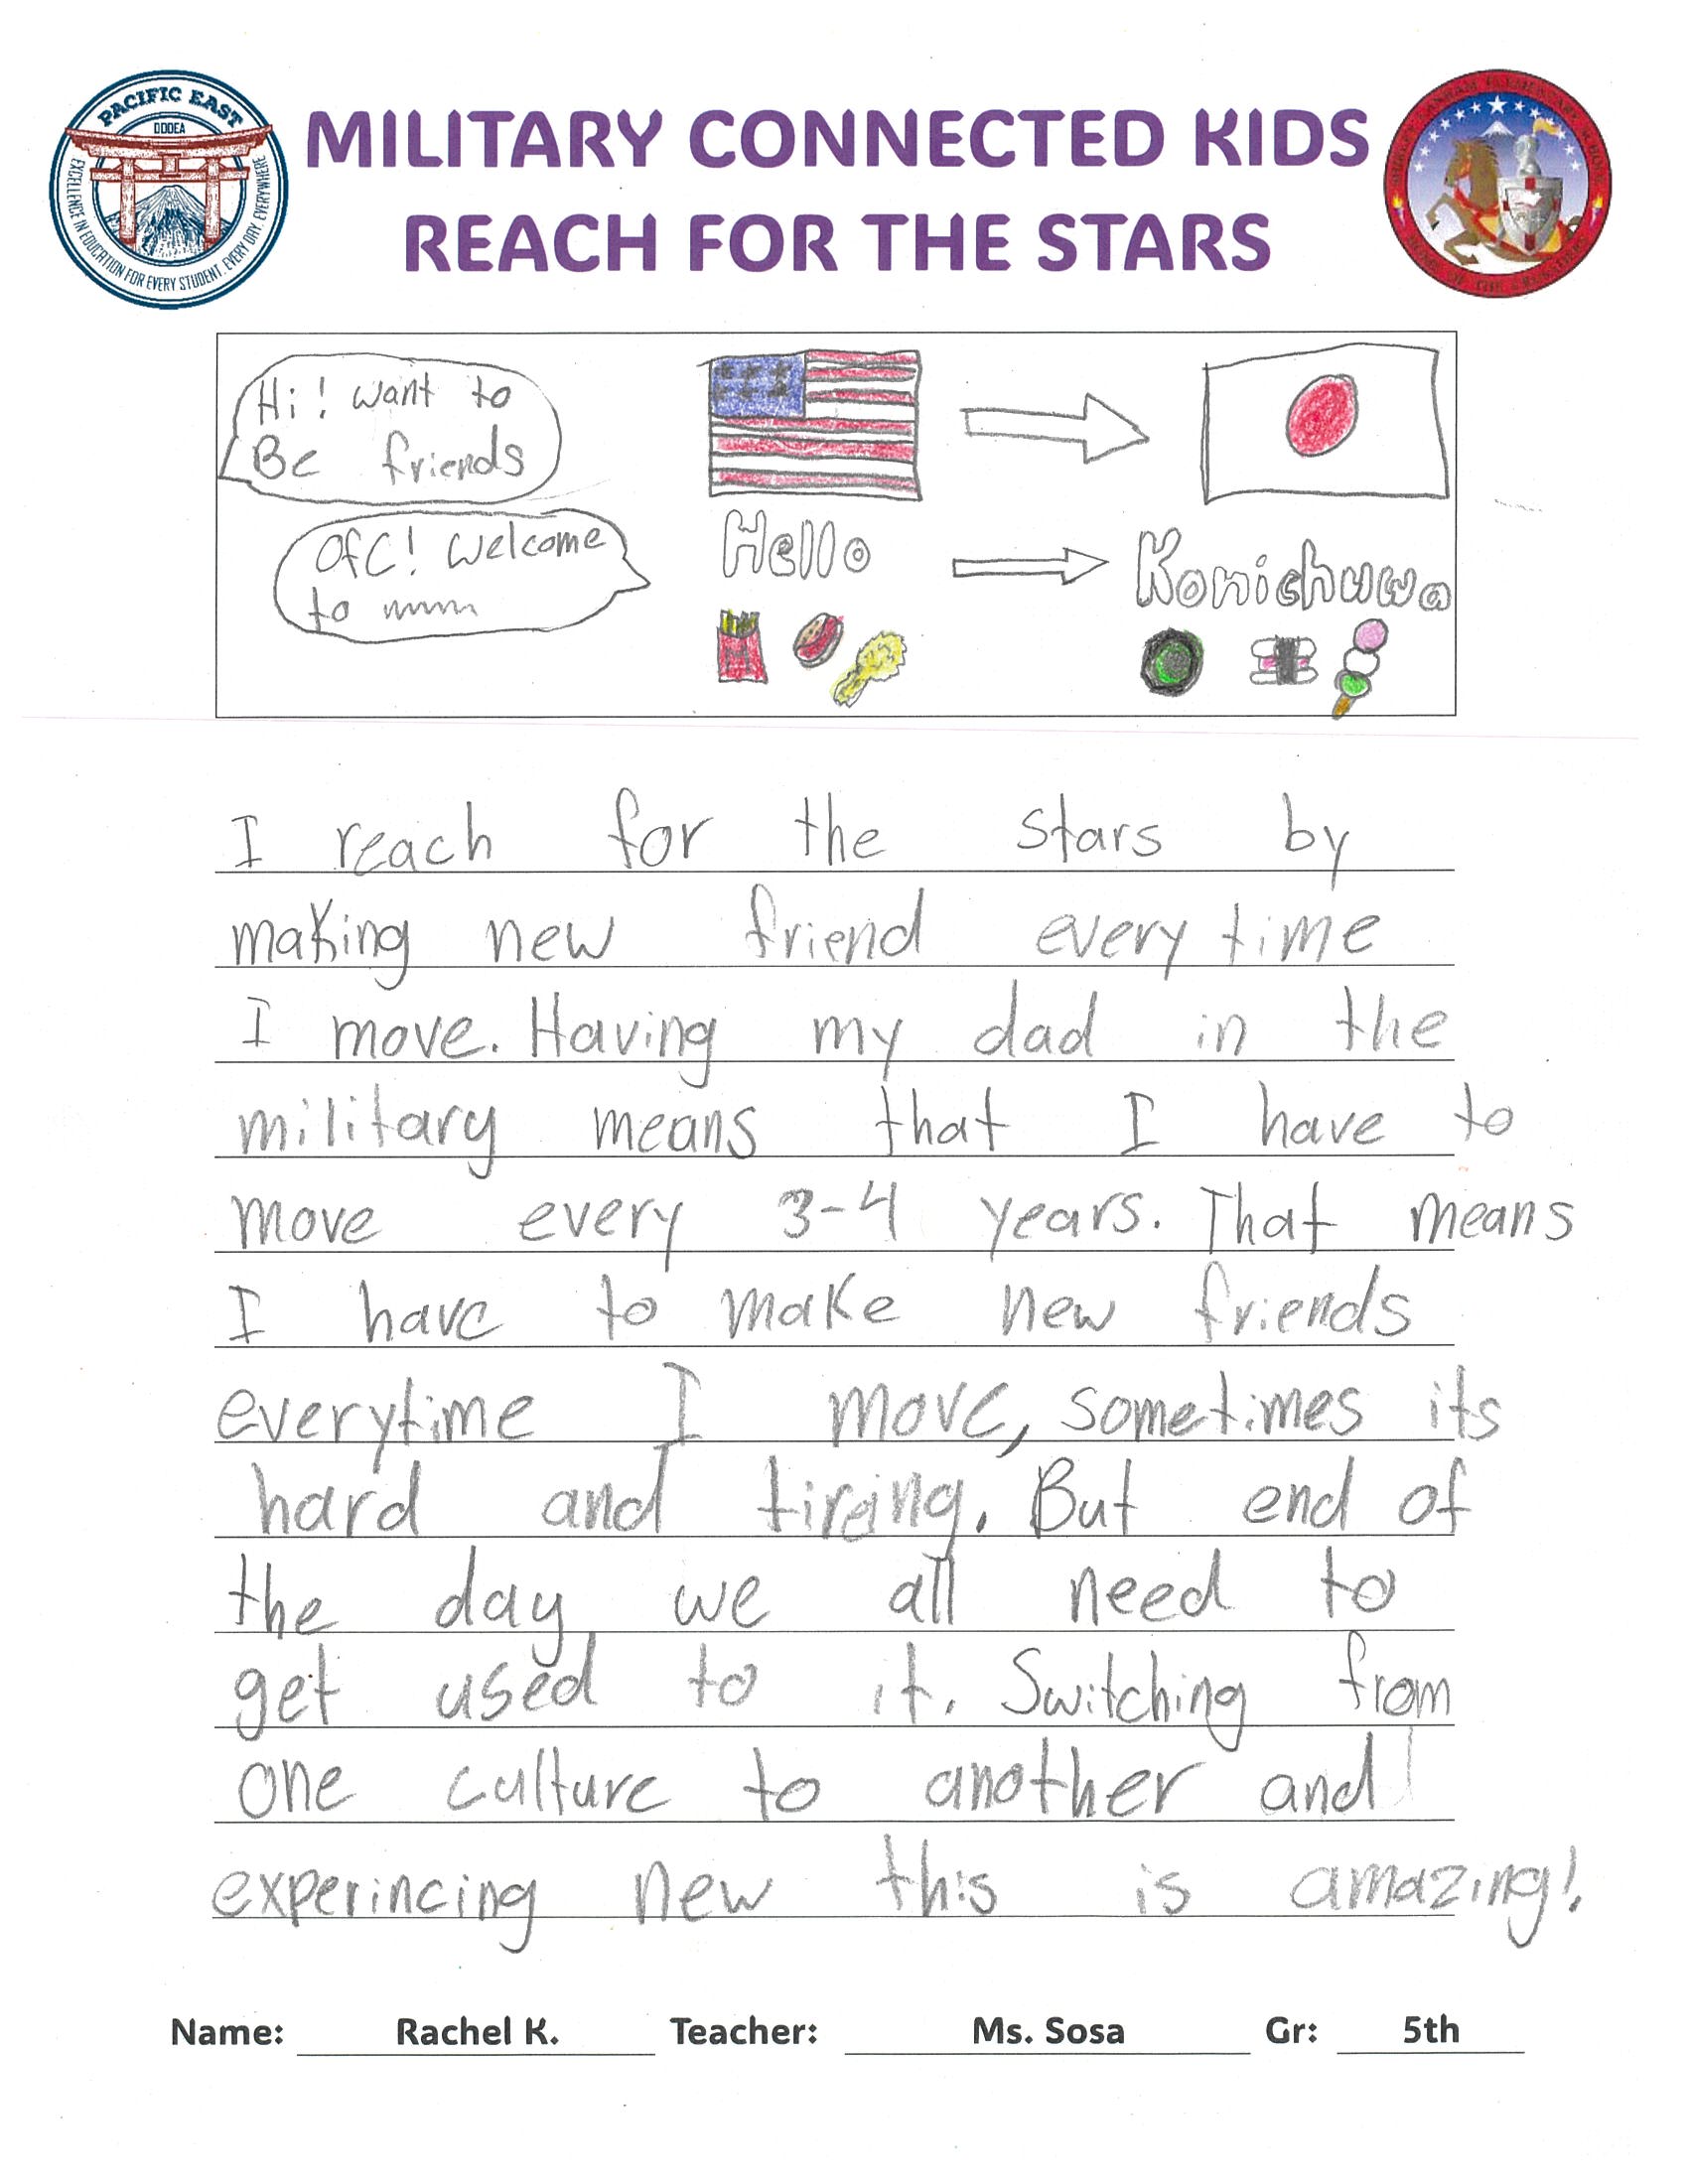 PACIFIC EAST
DODEA
EXCELLENCE IN EDUCATION FOR EVERY STUDENT, EVERY DAY, EVERYWHERE
MILITARY CONNECTED KIDS
REACH FOR THE STARS
Hi! want to
Be friends
Ofc! Welcome
to
Hello
Konichuwa
I reach for the stars by
making new friend every time
I move. Having my dad in the
military means that I have to
move every 3-4 years. That means
I have to make new friends
everytime I move, sometimes its
hard and tireing. But end of
the day we all need to
get used to it. Switching from
one culture to another and
experincing new this is amazing!.
Name: Rachel K. Teacher: Ms. Sosa Gr: 5th